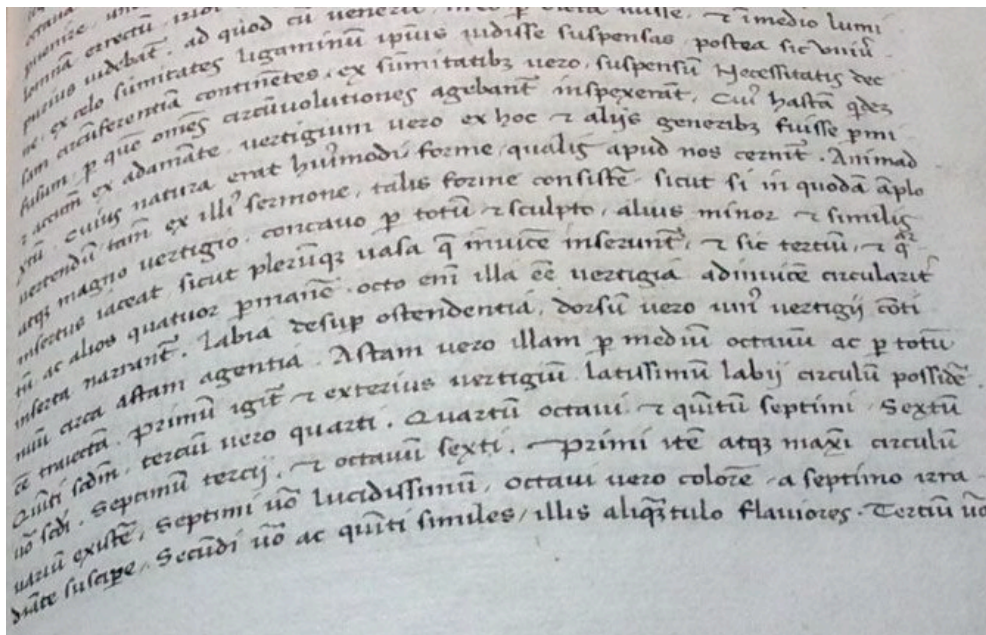 puenire, uni
lomnā errectū, iridi
purius videbāt. ad quod cū venerū, iude p dicta uisse, ⁊ ī medio lumi
ne, ex celo sūmitates ligaminū ipīus uidisse suspensas, postea sic vniū
sam circūferentiā continētes, ex sūmitatibꝫ vero, suspensū Necessitatis dec
fusum, p quē omēs circūvolutiones agebant inspexerāt, Cuiꝰ hastā qdeꝫ
⁊ accinū ex adamāte, vertigium vero ex hoc ⁊ alijs generibꝫ fuisse pmi
xtū. Cuius natura erat huiꝰmodi forme, qualis apud nos cernit̄. Animad
vertendū tam̄ ex illiꝰ sermone, talis forme consistē sicut si in quodā āplo
atqꝫ magno vertigio, concavo p totū ⁊ sculpto, alius minor ⁊ similis
insertus iaceat, sicut plerūqꝫ uasa q̄ inuicē inserunt̄, ⁊ sic tertiū, ⁊ q̄r
tū, ac alios quatuor pmanē. octo em̄ illa eē vertigia adinuicē circularit̄
inserta narrant̄. labia desup ostendentia, dorsū vero uniꝰ vertigij cōti
nuū circa astam agentia. Astam vero illam p mediū octauū ac p totū
eē traiectā. Primū igit̄ ⁊ exterius vertigiū latissimū labij circulū possidē.
Quīti scdm̄, terciū vero quarti. Quartū octaui ⁊ quītū septimi. Sextū
uō scdi. Septimū tercij, ⁊ octauū sexti. Primi itē atqꝫ maxi circulū
uariū existē, Septimi uō lucidissimū, octaui vero colorē a septimo irra-
diāte suscipe, Secūdi uō ac quīti similes, illis aliqꝫtulo flauiores. Terciū uō